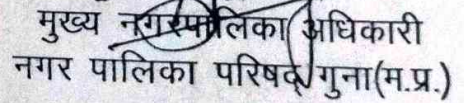 मुख्य नगरपालिका अधिकारी
नगर पालिका परिषद् गुना(म.प्र.)